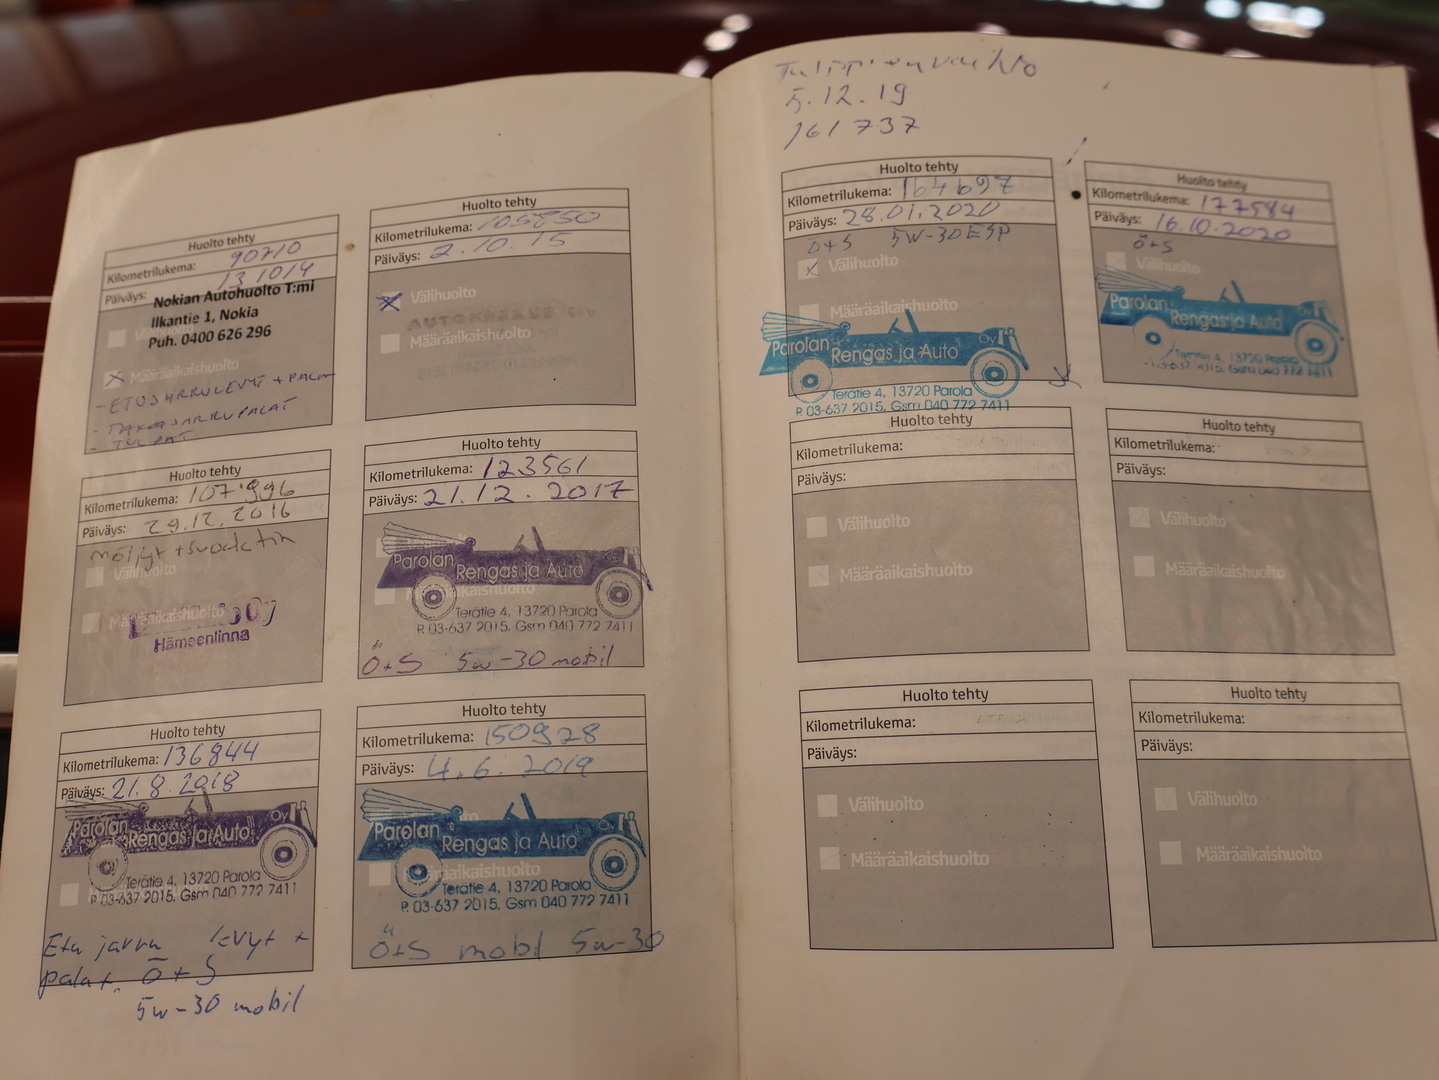 Huolto tehty
Kilometrilukema: 90710
Päiväys: 13.10.14
Nokian Autohuolto T:mi
Ilkantie 1, Nokia
Puh. 0400 626 296
Määräaikaishuolto
- ETUJARRULEVYT + PALAT
- TAKAJARRUPALAT
- TULPAT
Huolto tehty
Kilometrilukema: 105850
Päiväys: 2.10.15
Välihuolto
Määräaikaishuolto
Huolto tehty
Kilometrilukema: 107996
Päiväys: 29.12.2016
Välihuolto
Määräaikaishuolto
Oy
Hämeenlinna
Huolto tehty
Kilometrilukema: 123561
Päiväys: 21.12.2017
Parolan Rengas ja Auto Oy
Terätie 4, 13720 Parola
P. 03-637 2015, Gsm 040 772 7411
Ö+S 5w-30 mobil
Huolto tehty
Kilometrilukema: 136844
Päiväys: 21.8.2018
Parolan Rengas ja Auto Oy
Terätie 4, 13720 Parola
P. 03-637 2015, Gsm 040 772 7411
Etu jarru levyt +
palat. Ö+S
5w-30 mobil
Huolto tehty
Kilometrilukema: 150928
Päiväys: 4.6.2019
Parolan Rengas ja Auto Oy
Terätie 4, 13720 Parola
P. 03-637 2015, Gsm 040 772 7411
Ö+S mobil 5w-30
Tulppien vaihto
5.12.19
161737
Huolto tehty
Kilometrilukema: 164697
Päiväys: 28.01.2020
Ö+S 5W-30 ESP
Välihuolto
Määräaikaishuolto
Parolan Rengas ja Auto Oy
Terätie 4, 13720 Parola
P. 03-637 2015, Gsm 040 772 7411
Huolto tehty
Kilometrilukema: 177584
Päiväys: 16.10.2020
Ö+S
Välihuolto
Parolan Rengas ja Auto Oy
Huolto tehty
Kilometrilukema:
Päiväys:
Välihuolto
Määräaikaishuolto
Huolto tehty
Kilometrilukema:
Päiväys:
Välihuolto
Määräaikaishuolto
Huolto tehty
Kilometrilukema:
Päiväys:
Välihuolto
Määräaikaishuolto
Huolto tehty
Kilometrilukema:
Päiväys:
Välihuolto
Määräaikaishuolto